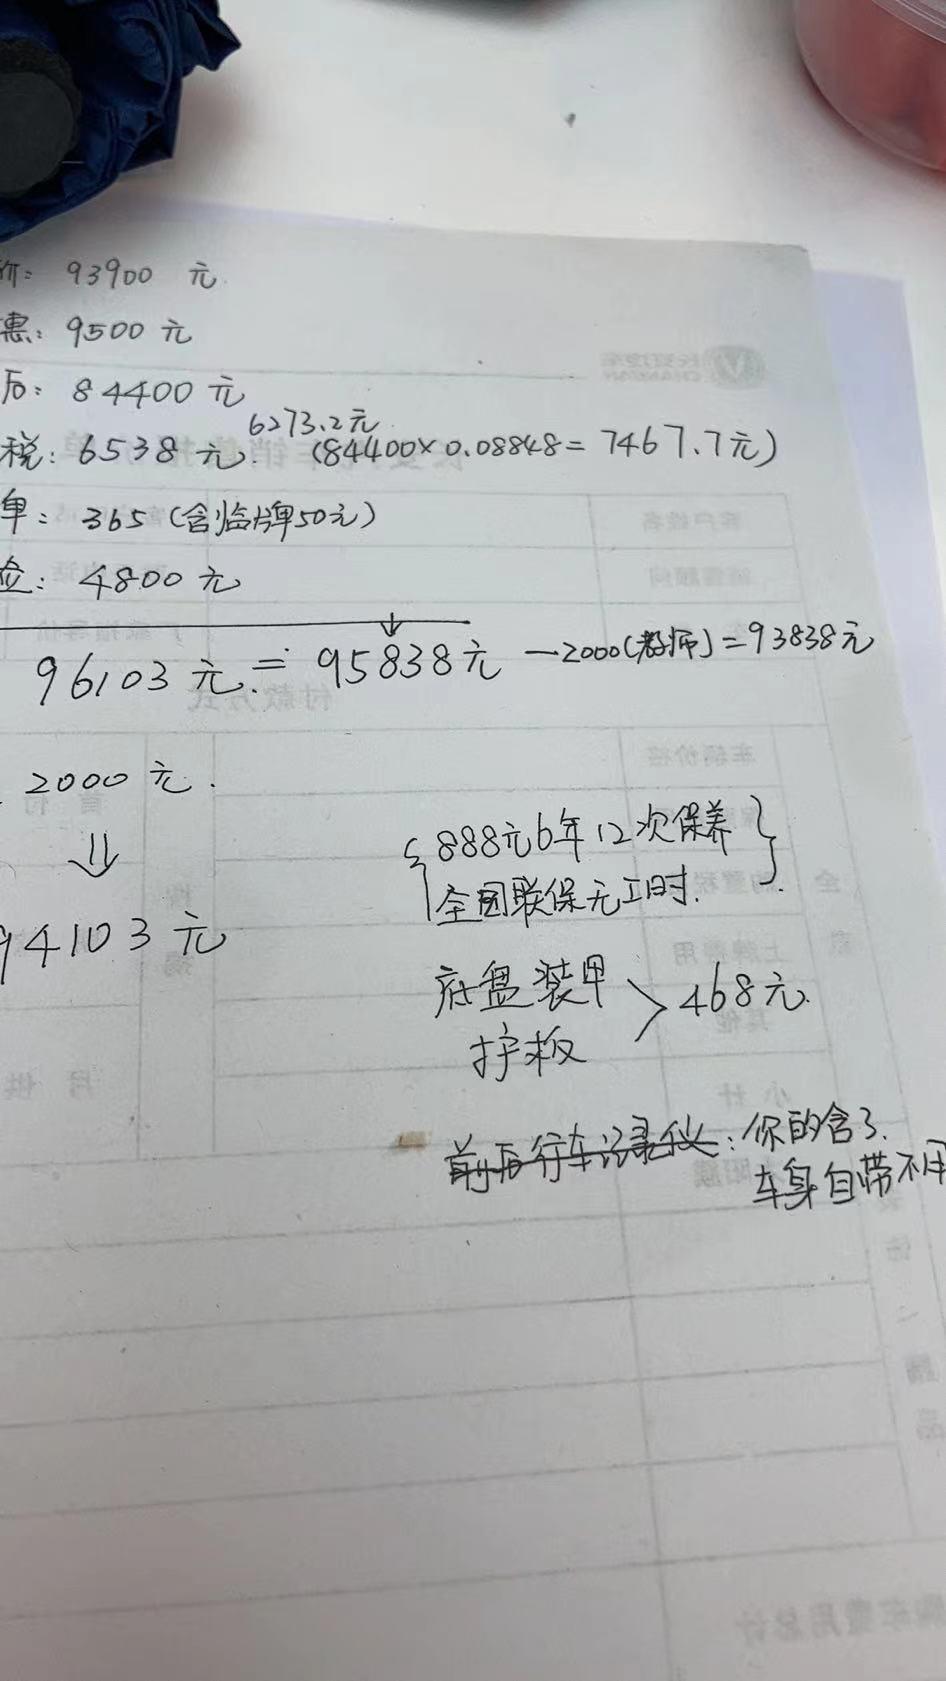 价: 93900 元
惠: 9500 元
后: 84400 元
6273.2元
税: 6538 元. (84400×0.08848=7467.7元)
单: 365 (含临牌50元)
险: 4800 元
96103 元. = 95838元 —2000(教师)=93838元
2000 元.
94103 元
{888元6年12次保养
全国联保无工时.}
底盘装甲
护板 > 468元.
前后行车记录仪: 你的含了.
车身自带不用